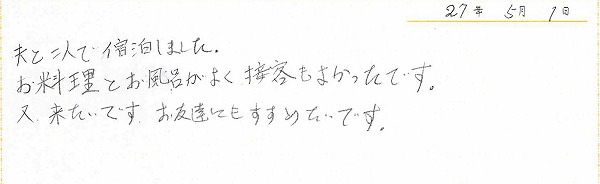 27年 5月 1日
夫と二人で宿泊しました。
お料理とお風呂がよく接客もよかったです。
又、来たいです。お友達にもすすめたいです。